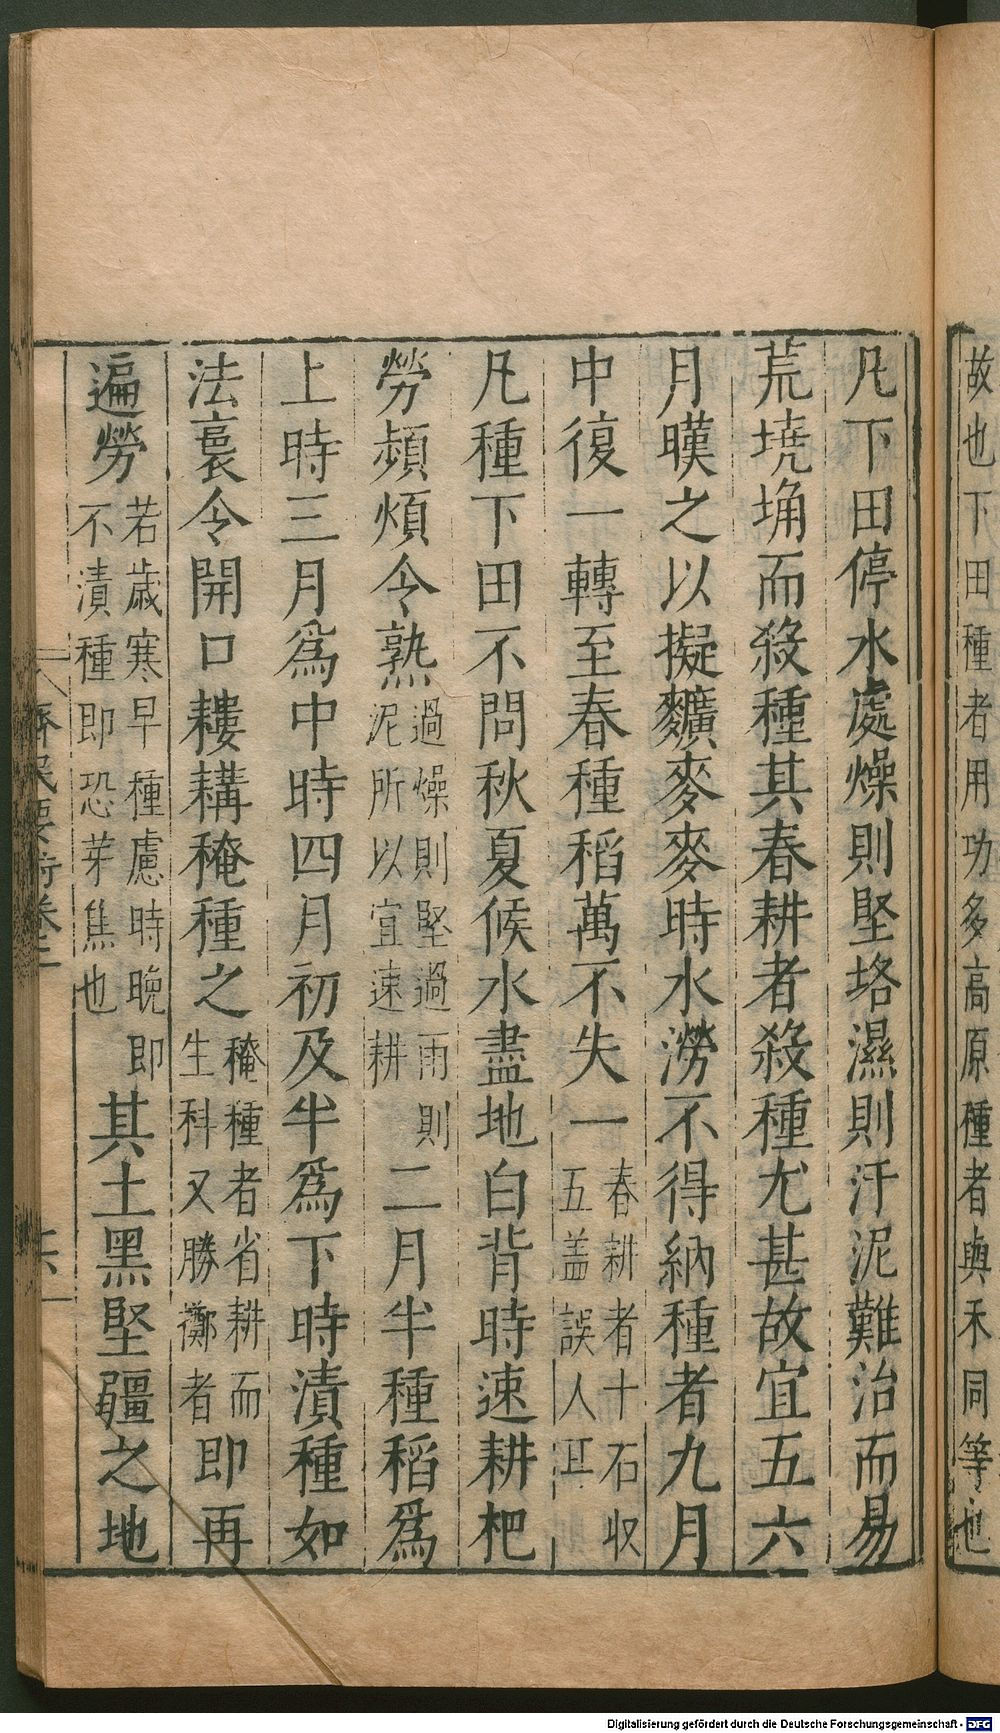 故也下田種者用功多高原種者與禾同等也
凡下田停水處燥則堅垎濕則汙泥難治而易
荒墝埆而殺種其春耕者殺種尤甚故宜五六
月暵之以擬䵃麥麥時水澇不得納種者九月
中復一轉至春種稻萬不失一春耕者十石收五盖誤人耳
凡種下田不問秋夏候水盡地白背時速耕杷
勞頻煩令熟過燥則堅過雨則泥所以宜速耕二月半種稻爲
上時三月爲中時四月初及半爲下時漬種如
法裛令開口耬耩䅖種之䅖種者省耕而生科又勝擲者即再
遍勞若歲寒早種慮時晚即不漬種即恐芽焦也其土黑堅疆之地
齊民要術卷二
Digitalisierung gefördert durch die Deutsche Forschungsgemeinschaft - DFG